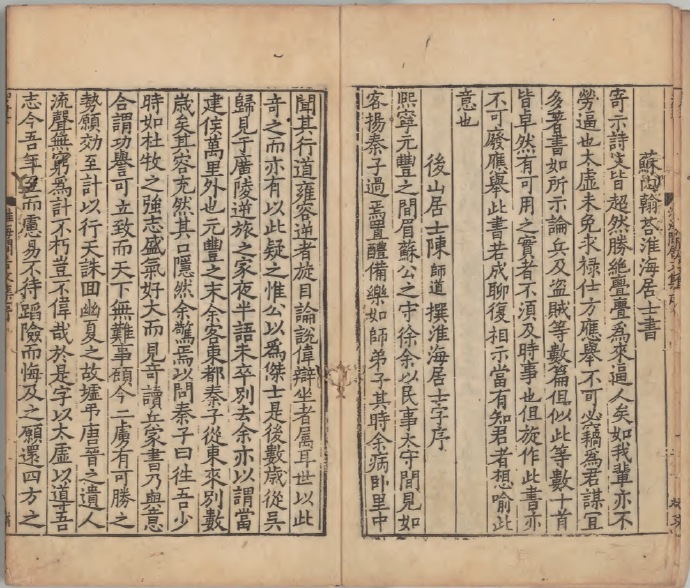 蘇内翰荅淮海居士書
寄示詩文皆超然勝絶亹亹焉來逼人矣如我輩亦不
勞逼也太虛未免求禄仕方應舉不可必竊為君謀宜
多著書如所示論兵及盗賊等數篇但似此等數十首
皆卓然有可用之實者不須及時事也但旋作此書亦
不可廢應舉此書若成聊復相示當有知君者想喻此
意也
後山居士陳師道撰淮海居士字序
熙寧元豐之間眉蘇公之守徐余以民事太守間見如
客揚秦子過焉置醴備樂如師弟子其時余病卧里中
聞其行道雍容逆者旋目論說偉辯坐者屬耳世以此
竒之而亦有以此疑之惟公以為傑士是後數歲從吴
歸見于廣陵逆旅之家夜半語未卒别去余亦以謂當
建侯萬里外也元豐之末余客東都秦子從東來别數
歲矣其容充然其口隱然余驚焉以問秦子曰徃吾少
時如杜牧之強志盛氣好大而見竒讀兵家書乃與意
合謂功譽可立致而天下無難事顧今二虜有可勝之
勢願効至計以行天誅回幽夏之故墟弔唐晉之遺人
流聲無窮為計不朽豈不偉哉於是字以太虛以導吾
志今吾年至而慮易不待蹈險而悔及之願還四方之